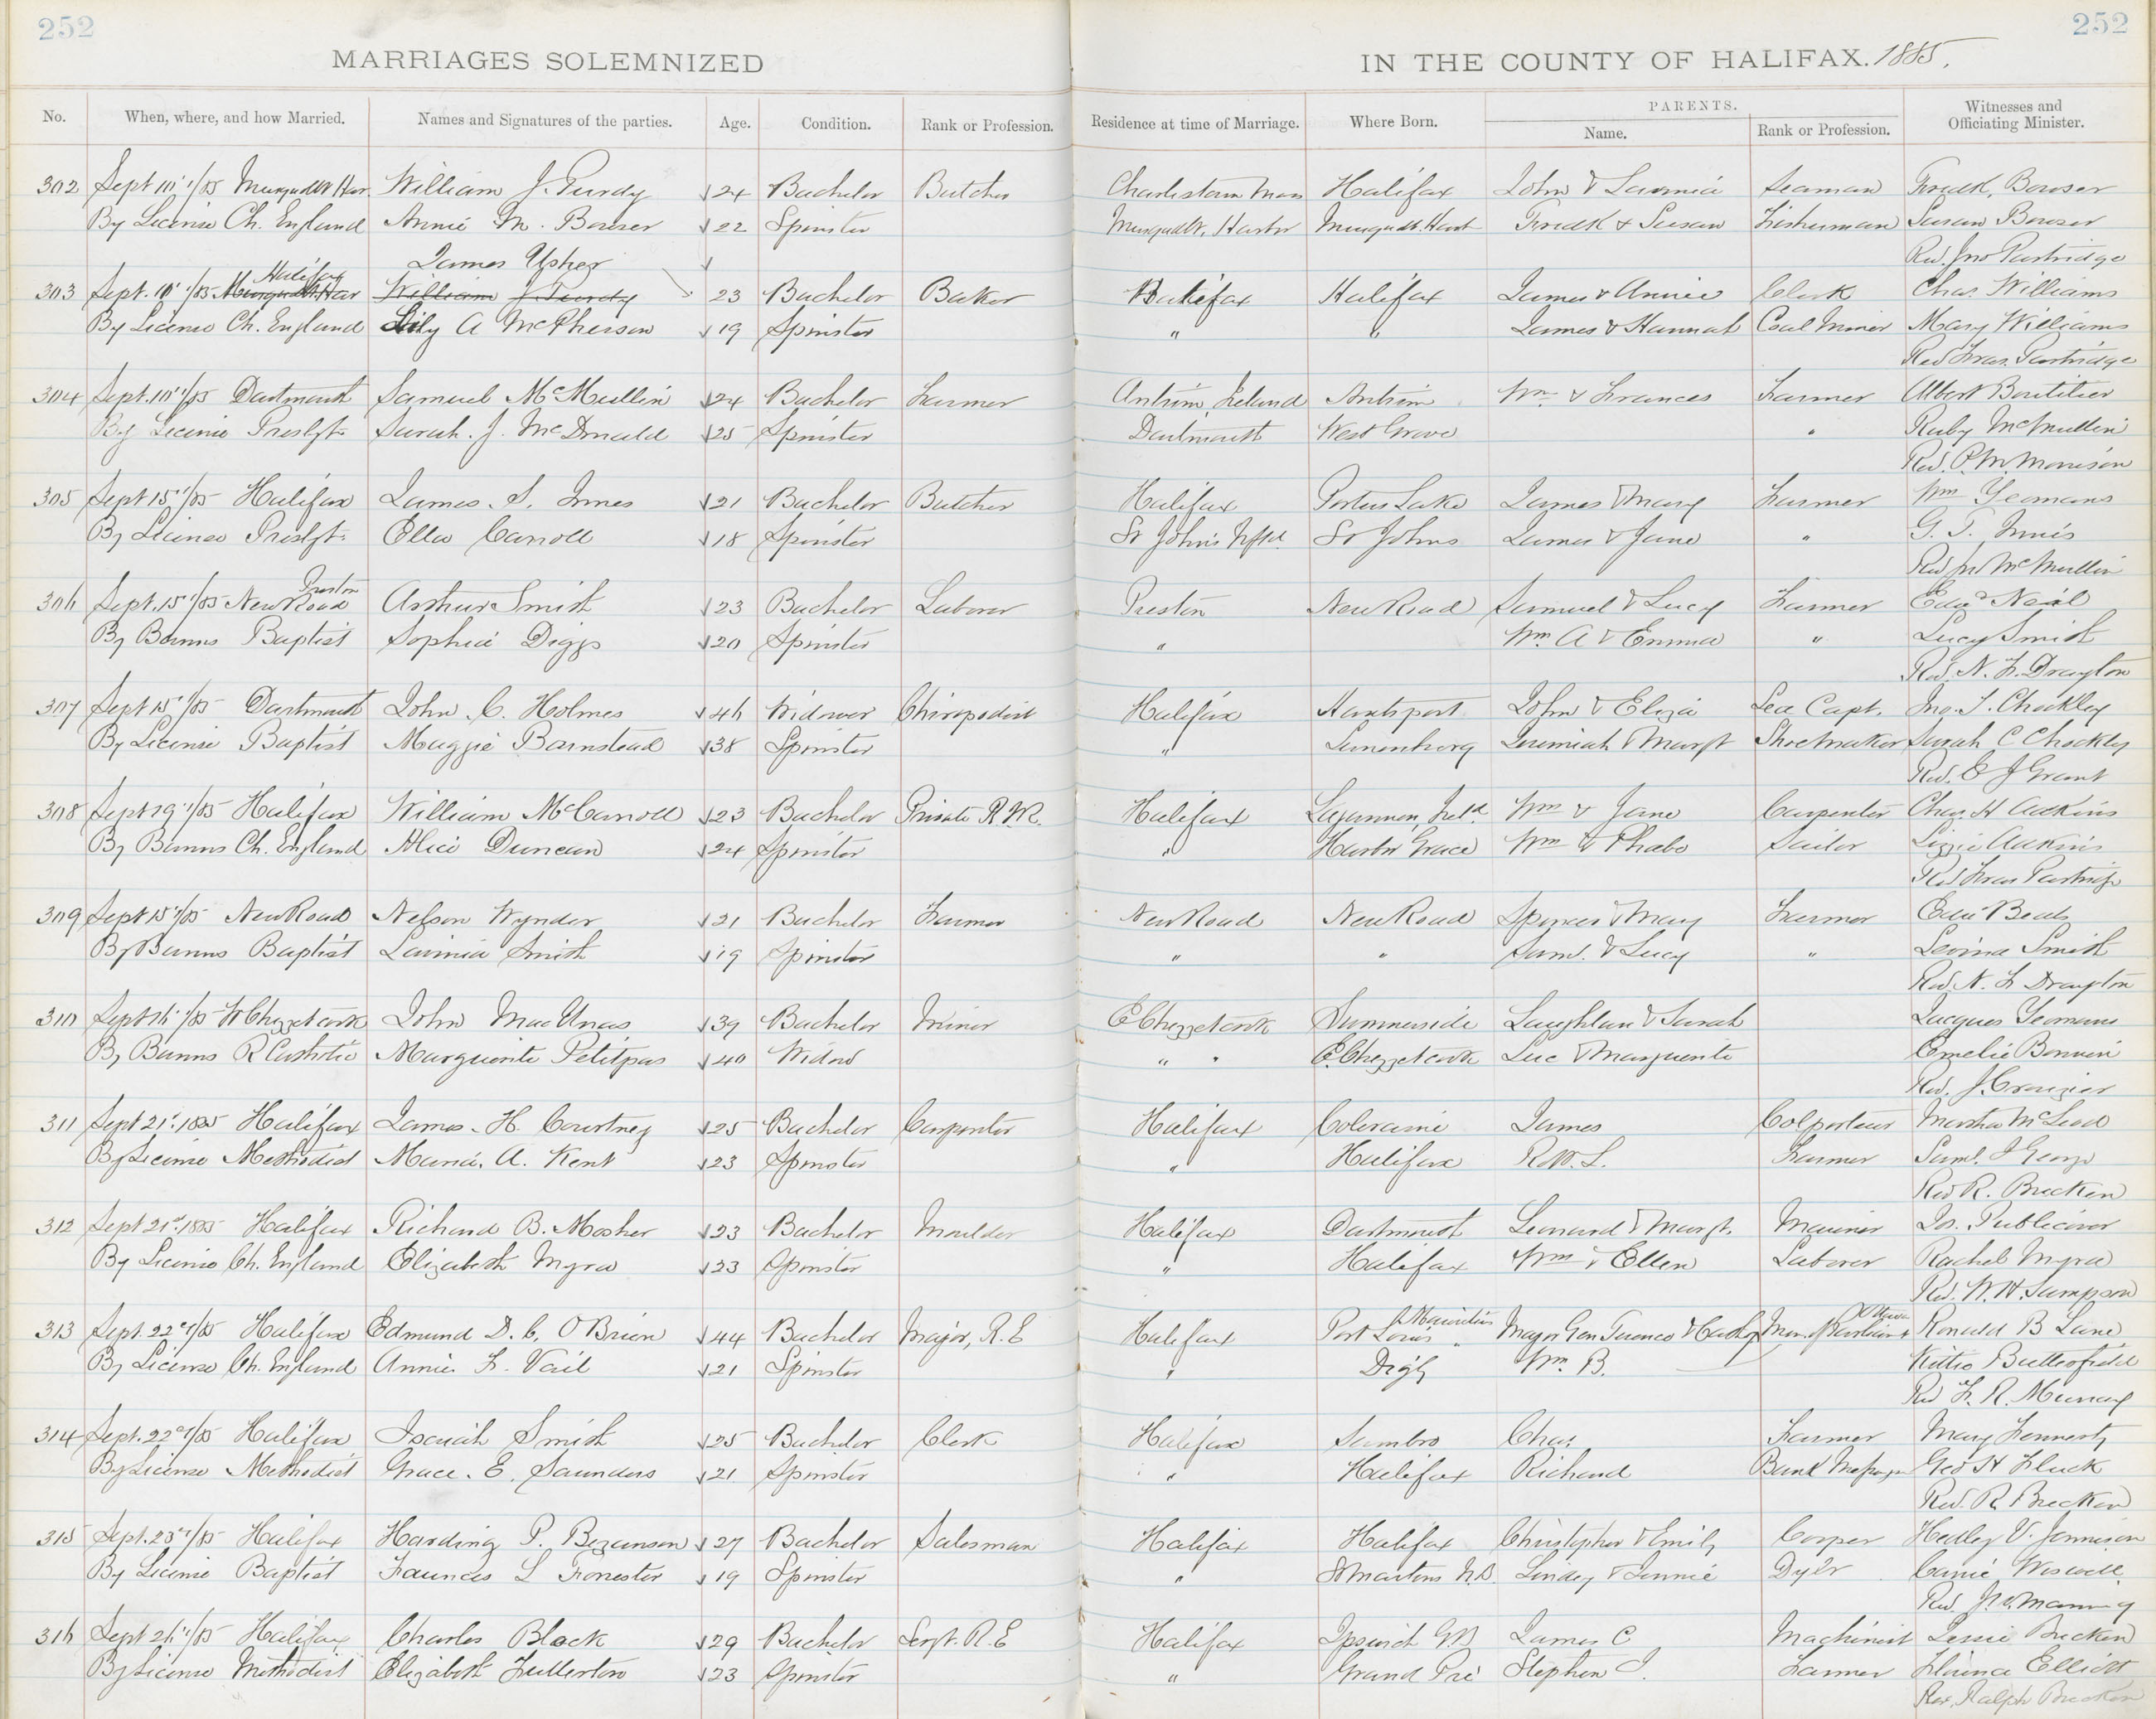 252
252
MARRIAGES SOLEMNIZED IN THE COUNTY OF HALIFAX. 1885.
No. When, where, and how Married. Names and Signatures of the parties. Age. Condition. Rank or Profession. Residence at time of Marriage. Where Born. PARENTS. Name. Rank or Profession. Witnesses and Officiating Minister.
302 Sept 10th/85 Musquodt Har. William J. Purdy 24 Bachelor Butcher Charlestown Mass Halifax John & Lavinia Seaman Fredk. Bowser
By License Ch. England Annie M. Bowser 22 Spinster Musquodt. Harbor Musquodt. Harb Fredk & Susan Fisherman Susan Bowser
James Usher Rev. Jno Partridge
303 Sept. 10 /85 Musquodt Har Halifax William J. Purdy 23 Bachelor Baker Halifax Halifax James & Annie Clerk Chas. Williams
By License Ch. England Lily A McPherson 19 Spinster " " James & Hannah Coal Miner Mary Williams
Rev Fras. Partridge
304 Sept. 10 /85 Dartmouth Samuel McMullin 24 Bachelor Farmer Antrim, Ireland Antrim Wm. & Frances Farmer Albert Boutilier
By License Presbyt. Sarah. J. McDonald 25 Spinster Dartmouth West Grove " Ruby McMullin
Rev. P. M. Morrison
305 Sept 15 /85 Halifax James. S. Innes 21 Bachelor Butcher Halifax Porters Lake James & Mary Farmer Wm Yeomans
By License Presbyt. Ella Carroll 18 Spinster St John's Nfld. St Johns James & Jane " G. T. Innis
Rev McMullin
306 Sept. 15 /85 New Road Preston Arthur Smith 23 Bachelor Laborer Preston New Road Samuel & Lucy Farmer Edwd Neal
By Banns Baptist Sophia Diggs 20 Spinster " Wm. A & Emma " Lucy Smith
Rev. N. F. Drayton
307 Sept 15 /85 Dartmouth John. C. Holmes 46 Widower Chiropodist Halifax Hantsport John & Eliza Sea Capt. Jno. T. Chockley
By License Baptist Maggie Barnstead 38 Spinster " Lunenburg Jeremiah & Margt Shoemaker Sarah C Chockley
Rev. E J Grant
308 Sept 19 /85 Halifax William McCarroll 23 Bachelor Private R.M. Halifax Ireld. Wm & Jane Carpenter Chas. H Adkins
By Banns Ch. England Alice Duncan 24 Spinster " Harbor Grace Wm & Phebe Sailor Lizzie Adkins
Rev Fras Partridge
309 Sept 15 /85 New Road Nelson Wynder 21 Bachelor Farmer New Road New Road Spencer & Mary Farmer Beals
By Banns Baptist Lavinia Smith 19 Spinster " " Saml. & Lucy " Levina Smith
Rev. N. F Drayton
310 Sept 16 /85 W Chezzetcook John Mac 39 Bachelor Miner E Chezzetcook Summerside Laughlan & Sarah Jacques Yeomans
By Banns R Catholic Marguerite Petitpas 40 Widow " " E. Chezzetcook Luc & Marguerite Emelie Bonvin
Rev. J. Crouzier
311 Sept 21st. 1885 Halifax James. H. Courtney 25 Bachelor Carpenter Halifax Coleraine James Colporteur Martha McLeod
By License Methodist Maria. A. Kent 23 Spinster " Halifax Robt. L. Farmer Saml. J George
Rev R. Brecken
312 Sept 21st. 1885 Halifax Richard B. Mosher 23 Bachelor Moulder Halifax Dartmouth Leonard & Margt. Mariner Jos. Publicover
By License Ch. England Elizabeth Myra 23 Spinster " Halifax Wm & Ellen Laborer Rachel Myra
Rev. W. H. Sampson
313 Sept. 22nd/85 Halifax Edmund D. C. O'Brien 44 Bachelor Major, R.E Halifax Port Louis Mauritius Major Gen Terence & Ronald B Lane
By License Ch. England Annie F. Vail 21 Spinster " Digby Wm. B. Kittie Butterfield
Rev F. R. Murray
314 Sept. 22nd/85 Halifax Isaiah Smith 25 Bachelor Clerk Halifax Sambro Chas. Farmer Mary Fennerty
By License Methodist Grace. E. Saunders 21 Spinster " Halifax Richard Bank Messenger Geo H Fluck
Rev. R. Brecken
315 Sept. 23rd/85 Halifax Harding P. Bezanson 27 Bachelor Salesman Halifax Halifax Christopher & Emily Cooper Hedley V. Jennison
By License Baptist Frances L Forrester 19 Spinster " St Martins N.B. Lindsy & Jennie Dyer Carrie Wiswell
Rev. J. W. Manning
316 Sept 26 /85 Halifax Charles Block 29 Bachelor Sergt. R.E Halifax Ipswich G.B James C Machinist Jessie Brecken
By License Methodist Elizabeth Fullerton 23 Spinster " Grand Pré Stephen J. Farmer Florence Elliott
Rev. Ralph Brecken